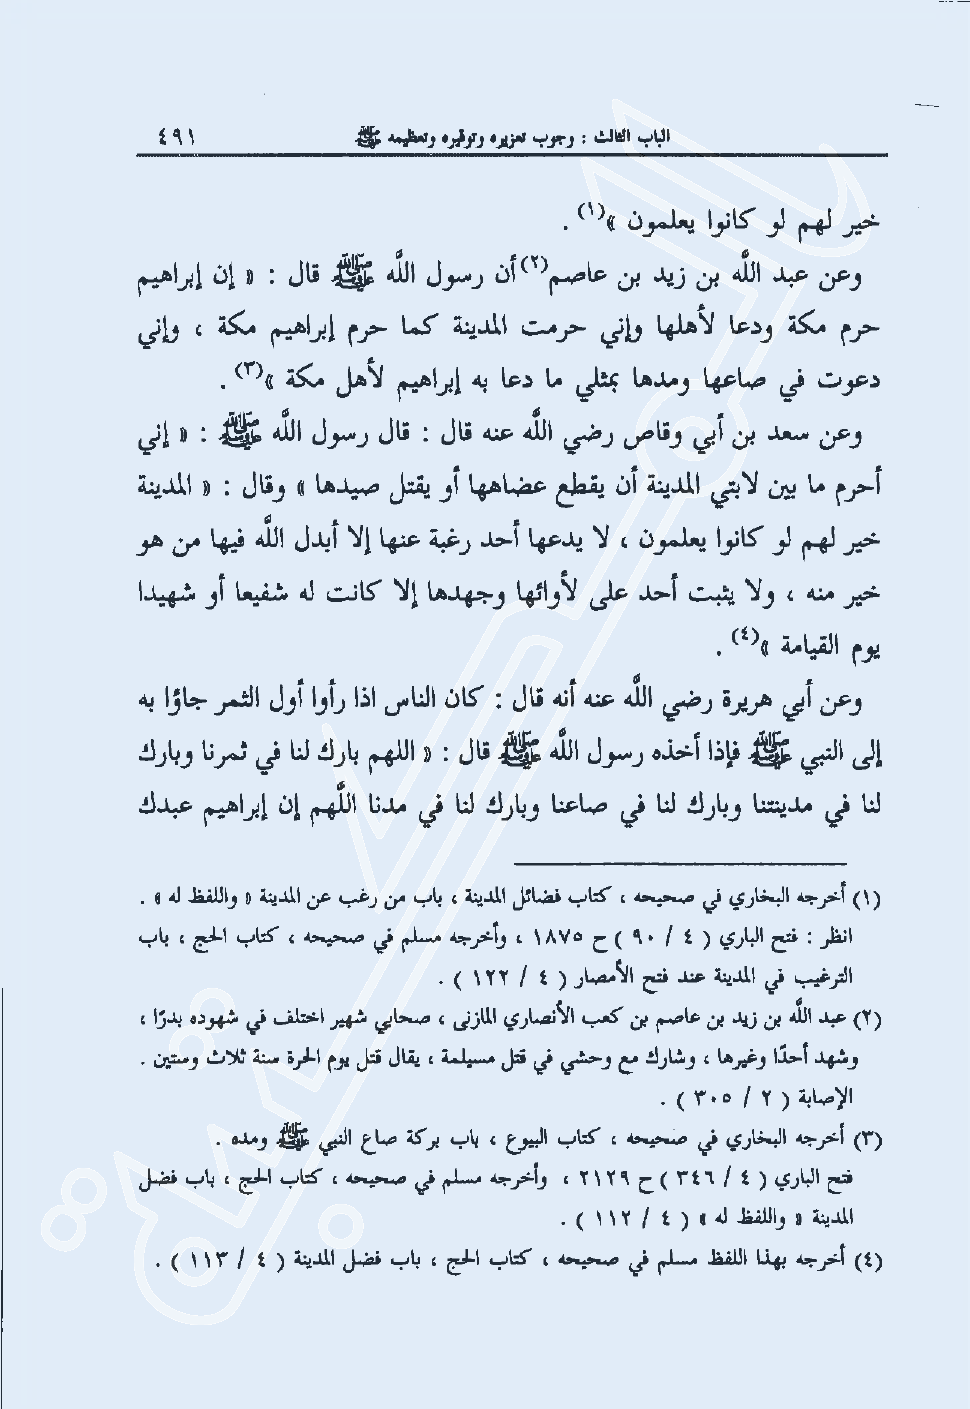 الباب الثالث : وجوب تعزيره وتوقيره وتعظيمه ﷺ ٤٩١
خير لهم لو كانوا يعلمون »(١) .
وعن عبد الله بن زيد بن عاصم(٢) أن رسول الله ﷺ قال : « إن إبراهيم
حرم مكة ودعا لأهلها وإني حرمت المدينة كما حرم إبراهيم مكة ، وإني
دعوت في صاعها ومدها بمثلي ما دعا به إبراهيم لأهل مكة »(٣) .
وعن سعد بن أبي وقاص رضي الله عنه قال : قال رسول الله ﷺ : « إني
أحرم ما بين لابتي المدينة أن يقطع عضاهها أو يقتل صيدها » وقال : « المدينة
خير لهم لو كانوا يعلمون ، لا يدعها أحد رغبة عنها إلا أبدل الله فيها من هو
خير منه ، ولا يثبت أحد على لأوائها وجهدها إلا كانت له شفيعا أو شهيدا
يوم القيامة »(٤) .
وعن أبي هريرة رضي الله عنه أنه قال : كان الناس اذا رأوا أول الثمر جاؤا به
إلى النبي ﷺ فإذا أخذه رسول الله ﷺ قال : « اللهم بارك لنا في ثمرنا وبارك
لنا في مدينتنا وبارك لنا في صاعنا وبارك لنا في مدنا اللهم إن إبراهيم عبدك
(١) أخرجه البخاري في صحيحه ، كتاب فضائل المدينة ، باب من رغب عن المدينة « واللفظ له » .
انظر : فتح الباري ( ٤ / ٩٠ ) ح ١٨٧٥ ، وأخرجه مسلم في صحيحه ، كتاب الحج ، باب
الترغيب في المدينة عند فتح الأمصار ( ٤ / ١٢٢ ) .
(٢) عبد الله بن زيد بن عاصم بن كعب الأنصاري المازنى ، صحابي شهير اختلف في شهوده بدرًا ،
وشهد أحدًا وغيرها ، وشارك مع وحشي في قتل مسيلمة ، يقال قتل يوم الحرة سنة ثلاث وستين .
الإصابة ( ٢ / ٣٠٥ ) .
(٣) أخرجه البخاري في صحيحه ، كتاب البيوع ، باب بركة صاع النبي ﷺ ومده .
فتح الباري ( ٤ / ٣٤٦ ) ح ٢١٢٩ ، وأخرجه مسلم في صحيحه ، كتاب الحج ، باب فضل
المدينة « واللفظ له » ( ٤ / ١١٢ ) .
(٤) أخرجه بهذا اللفظ مسلم في صحيحه ، كتاب الحج ، باب فضل المدينة ( ٤ / ١١٣ ) .